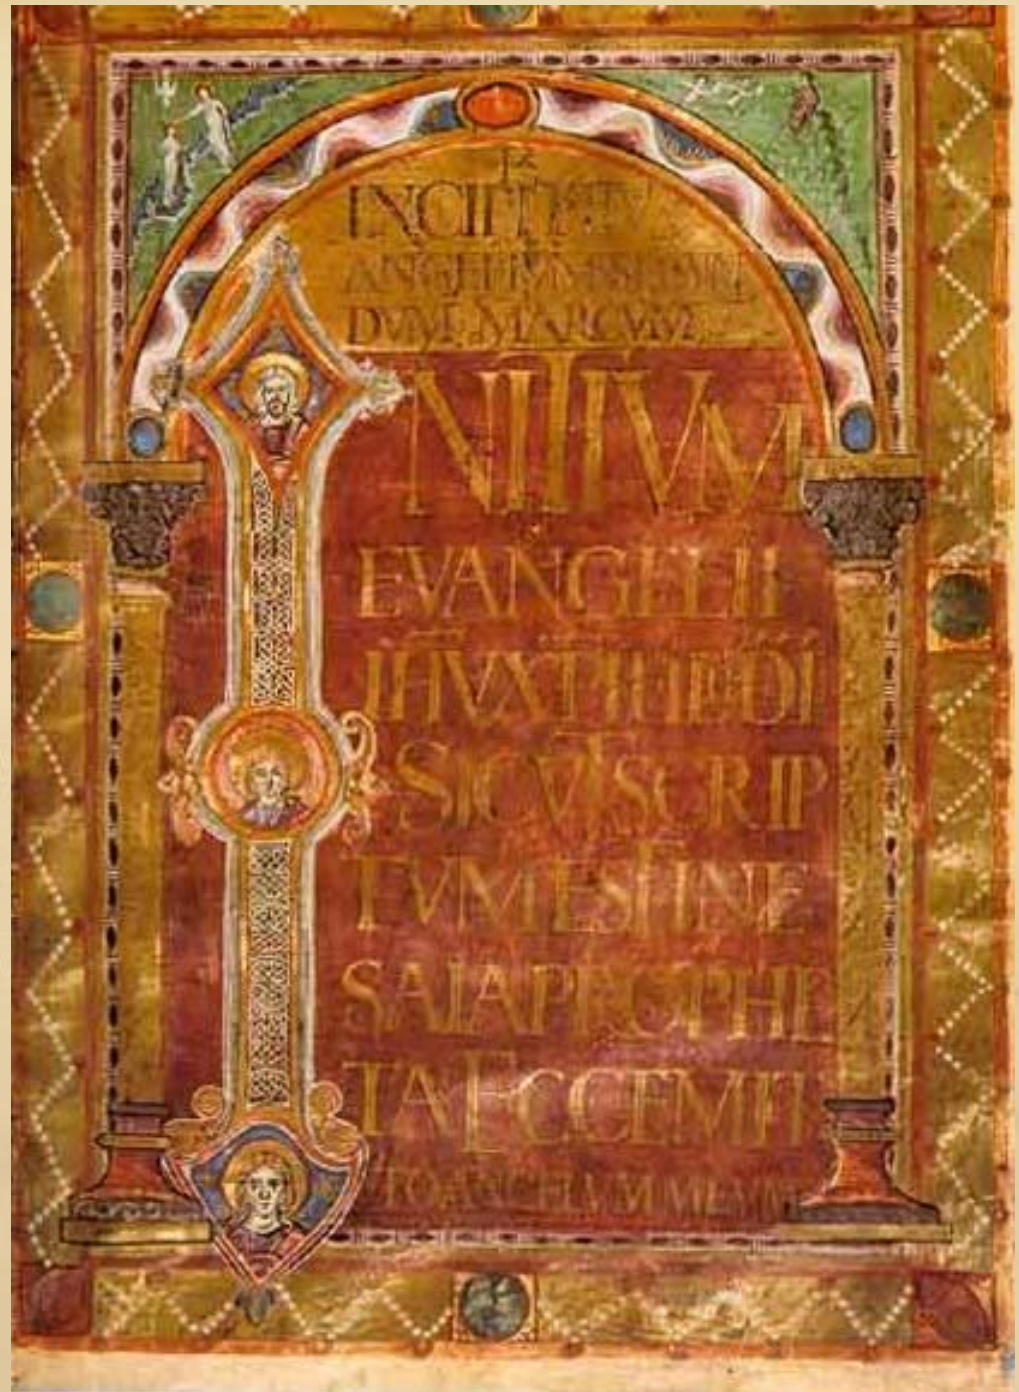 INCIPIT EV
ANGELIVM SECVN
DVM MARCVM
INITIVM
EVANGELII
IHV XPI FILII DI
SICVT SCRIP
TVM EST IN E
SAIA PROPHE
TA ECCE MIT
TO ANGELVM MEVM